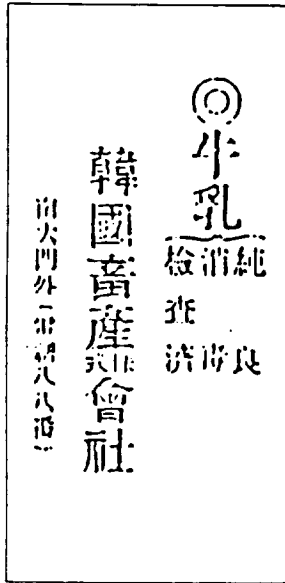 ◎牛乳
純良
消毒
檢査濟
韓國畜産株式會社
南大門外(電話八八番)